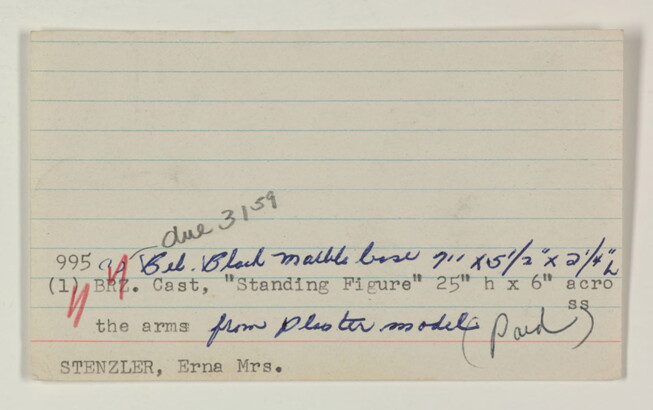 due 3 1 59
995 Bel. Black marble base 7" x 5 1/2" x 2 1/4" h
(1) BRZ. Cast, "Standing Figure" 25" h x 6" acro
ss
the arms from plaster model (Paid)
STENZLER, Erna Mrs.